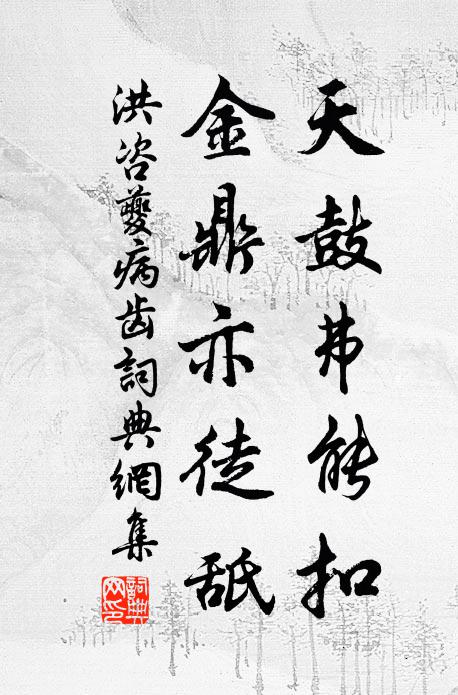 天鼓弗能扣
金鼎亦徒舐
洪咨夔病齿詞典網集
詞典